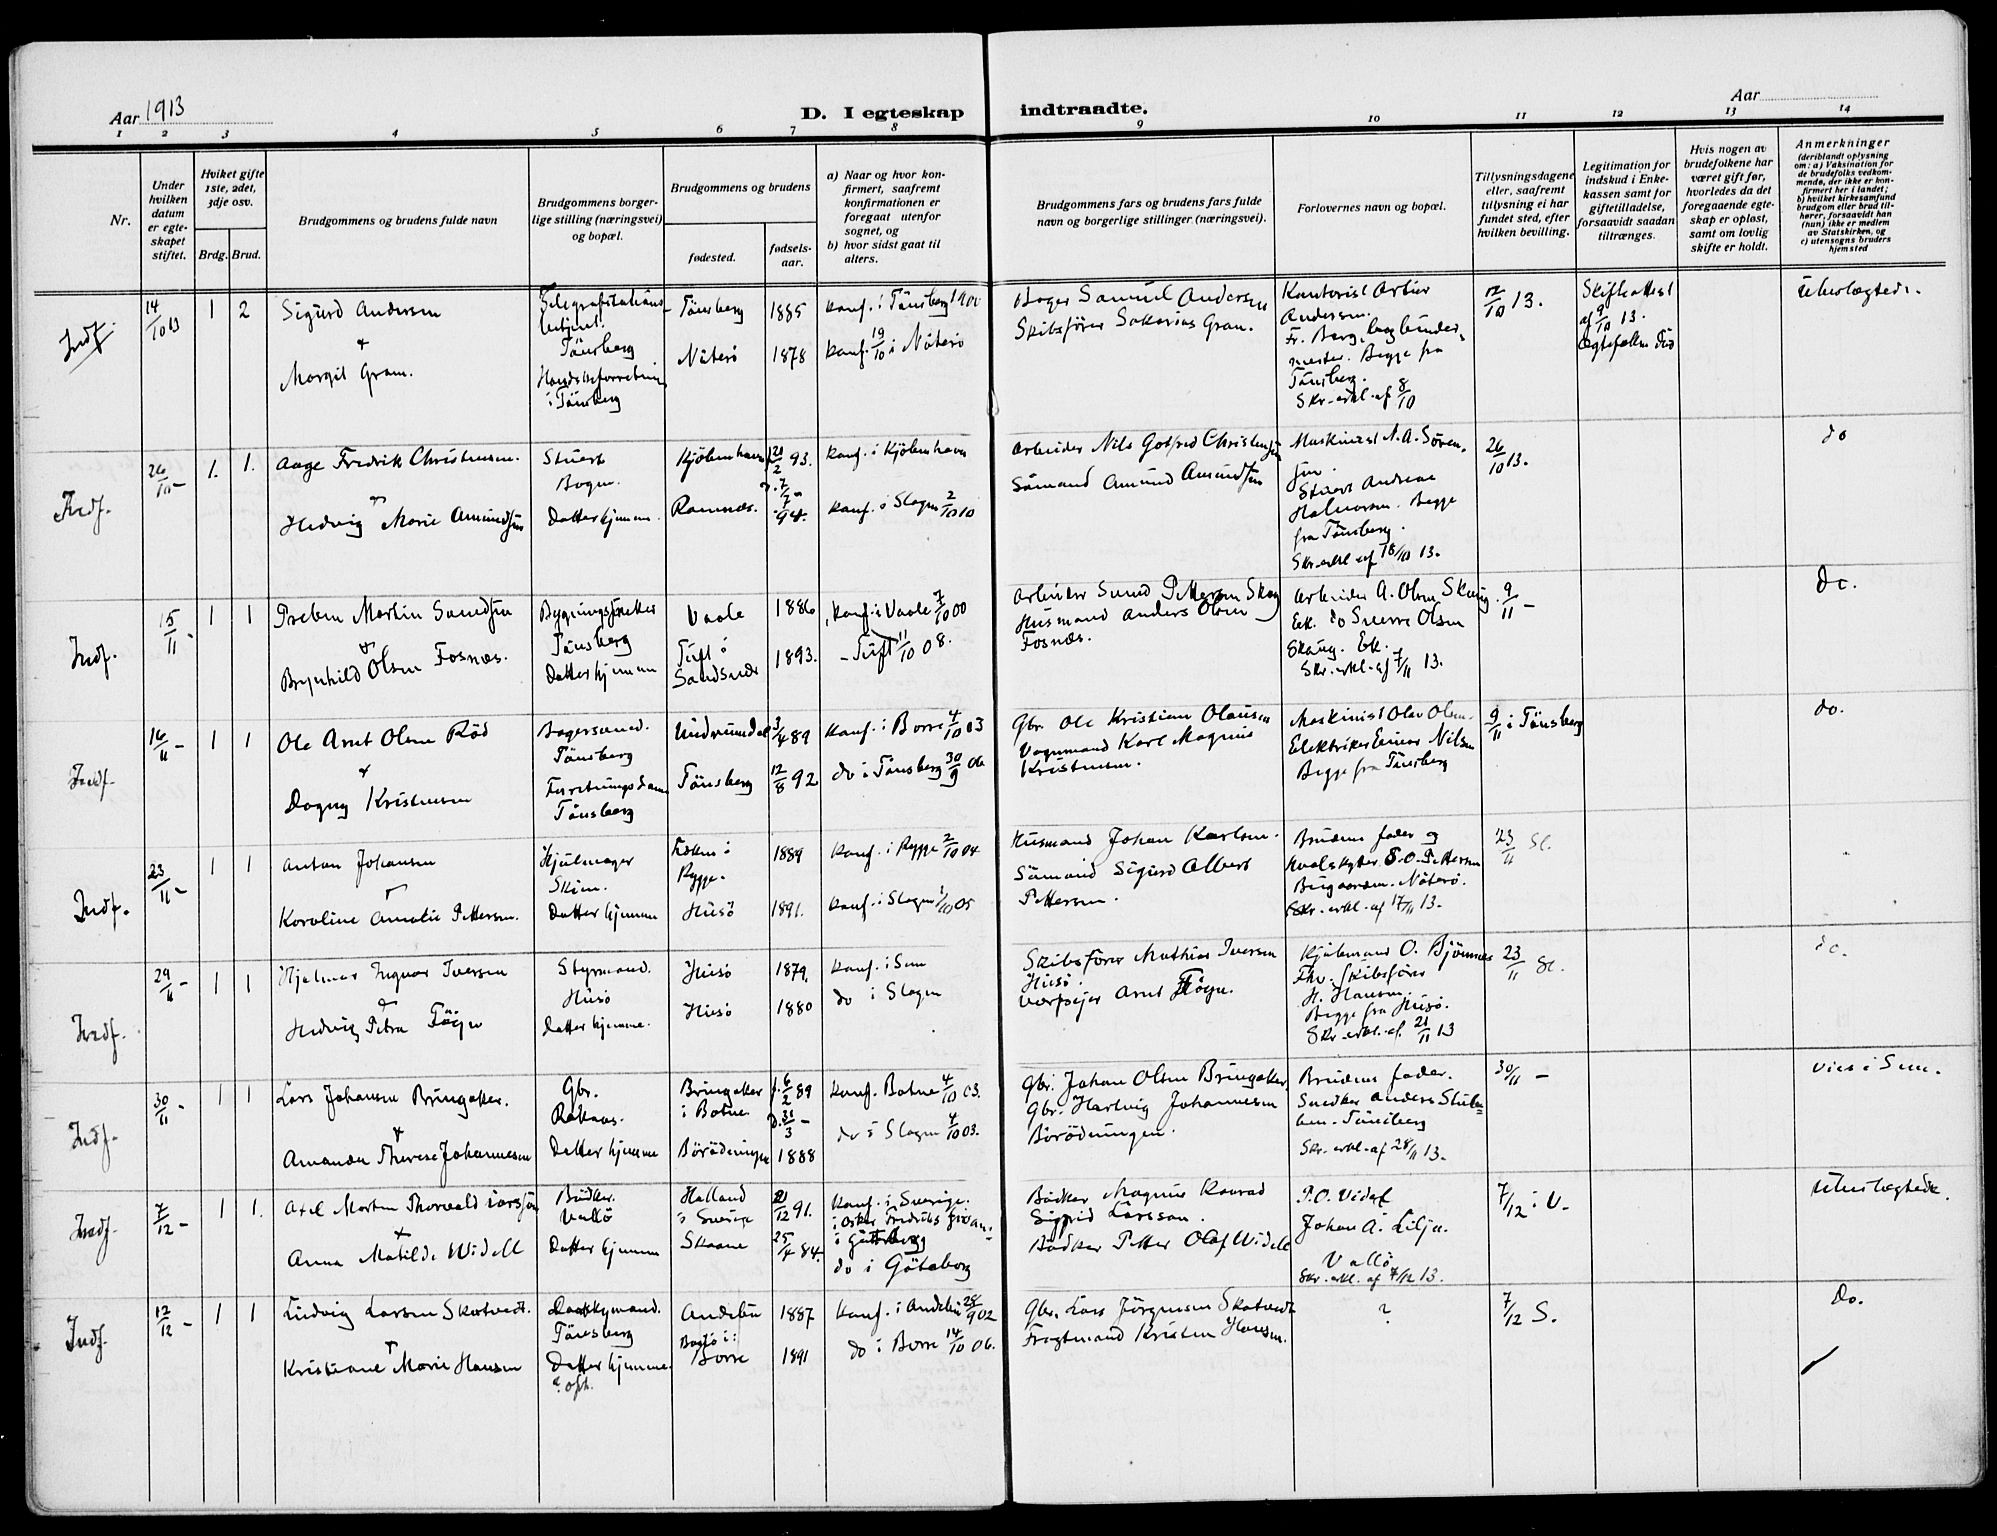 Aar 1913
D. I egteskap indtraadte.
Aar
1 2 3 4 5 6 7 8 9 10 11 12 13 14
Nr.
Under hvilken datum er egteskapet stiftet.
Hviket gifte 1ste, 2det, 3dje osv.
Brdg. Brud.
Brudgommens og brudens fulde navn
Brudgommens borgerlige stilling (næringsvei) og bopæl.
Brudgommens og brudens
fødested.
fødselsaar.
a) Naar og hvor konfirmert, saafremt konfirmationen er foregaat utenfor sognet, og
b) hvor sidst gaat til alters.
Brudgommens fars og brudens fars fulde navn og borgerlige stillinger (næringsvei).
Forlovernes navn og bopæl.
Tillysningsdagene eller, saafremt tillysning ei har fundet sted, efter hvilken bevilling.
Legitimation for indskud i Enkekassen samt for giftetilladelse, forsaavidt saadan tiltrænges.
Hvis nogen av brudefolkene har været gift før, hvorledes da det foregaaende egteskap er opløst, samt om lovlig skifte er holdt.
Anmerkninger
(deriblandt oplysning om: a) Vaksination for de brudefolks vedkommende, der ikke er konfirmert her i landet; b) hvilket kirkesamfund brudgom eller brud tilhører, forsaavidt han (hun) ikke er medlem av Statskirken, og c) utensogns bruders hjemsted
Indf. 14/10 13 1 2
Sigurd Andersen
+
Margit Gram.
Telegrafstations-
betjent.
Tönsberg
i Tönsberg
Tönsberg 1885
Nöterö 1878
konf. i Tönsberg
konf. 19/10 i Nöterö
Bager Samuel Andersen
Skibsförer Sakarias Gram.
Kontorist Artur
Andersen.
Fr. Berg, bogbinder-
mester. Begge fra
Tönsberg.
Skr. erkl. af 8/10
12/10 13.
Skifteattest
af 9/10 13.
Utenlægteds.
Indf. 26/10 - 1. 1.
Aage Fredrik Christensen.
+
Hedvig Marie Amundsen
Stuert
Bogen.
Datter hjemme.
Kjöbenhavn 93.
Ramnæs. 94.
konf. i Kjöbenhavn
konf. i Slagen 2/10 10
Arbeider Nils Gotfred Christensen
Sömand Amund Amundsen
Maskinist N. A. Sören-
sen.
Stuert Andreas
Halvorsen. Begge
fra Tönsberg.
Skr. erkl. af 18/10 13.
26/10 13.
do
Indf. 15/11 - 1 1
Preben Martin Sundsen
+
Brynhild Olsen Fosnæs.
Bygningssnekker
Tönsberg
Datter hjemme
Vaale 1886
Tuft i
Sandsvær 1893.
konf. i Vaale 7/10 00
- Tuft 11/10 08.
Arbeider Sund Pettersen Skog
Husmand Anders Olsen
Fosnæs.
Arbeider A. Olsen Skaug.
Eik. do Sverre Olsen
Skaug. Eik.
Skr. erkl. af 7/11 13.
9/11 -
do.
Indf. 16/11 - 1 1
Ole Arnt Olsen Röd
+
Dagny Kristensen
Bagersvend.
Tönsberg
Forretningsdame
Tönsberg
Undrumdal 3/4 89
Tönsberg 12/8 92
konf. i Borre 4/10 03
do i Tönsberg 30/9 06
Gbr. Ole Kristian Olausen
Vognmand Karl Magnus
Kristensen.
Maskinist Olav Olsen.
Elektriker Einar Nilsen
Begge fra Tönsberg
9/11 i Tönsberg
do.
Indf. 23/11 - 1 1
Anton Johansen
+
Karoline Amalie Pettersen.
Hjulmager
Datter hjemme
Rygge. 1889
Husö 1891.
konf. i Rygge 2/10 04
konf. i Slagen 1/10 05
Husmand Johan Karlsen.
Sömand Sigurd Albert
Pettersen.
Brudens fader og
Hvalskytter S. O. Pettersen
Nöterö.
Skr. erkl. af 17/11 13.
23/11 Sl.
Indf. 29/11 - 1 1
Hjalmar Ingvar Iversen
+
Hedvig Petra Fögn
Styrmand.
Husö
Datter hjemme.
Husö 1879.
Husö 1880
konf. i Sem
do i Slagen
Skibsförer Mathias Iversen
Husö.
Verfseier Arnt Fögn.
O. Bjönnes
Fhv. Skibsförer
H. Hansen.
Begge fra Husö.
Skr. erkl. af 21/11 13
23/11 Sl.
do.
Indf. 30/11 - 1 1
Lars Johansen Bringaker.
+
Amanda Therese Johannesen
Gbr.
Datter hjemme
Bringaker
i Botne 6/2 89
31/3 -
1888
konf. Botne 4/10 03.
do i Slagen 4/10 03.
Gbr. Johan Olsen Bringaker.
Gbr. Hartvig Johannesen
Brudens fader.
Snedker Anders
Tönsberg
Skr. erkl. af 28/11 13.
30/11 -
Vies i Sem.
Indf. 7/12 - 1 1.
Axel Morten Thorvald Larsson
+
Anna Matilde Widell
Bödker.
Vallö
Datter hjemme
Halland
i Sverige 91.
Skaane 25/4 84.
konf. i Sverige.
i Göteborg
do i Göteborg
Bödker Magnus Konrad
Sigfrid Larsson.
Bödker Petter Olaf Widell
P. O. Videll
Johan A. Lilja.
Vallö
Skr. erkl. af 7/12 13.
7/12 i V.
Utenlægteds.
Indf. 12/12 - 1 1
Ludvig Larsen Skotvedt.
+
Kristiane Marie Hansen
Tönsberg
Datter hjemme.
Andebu 1887
Borre 1891
konf. i Andebu 28/9 02
do i Borre 14/10 06.
Gbr. Lars Jörgensen Skotvedt
Fragtemand Kristen Hansen.
?
7/12 S.
Do.